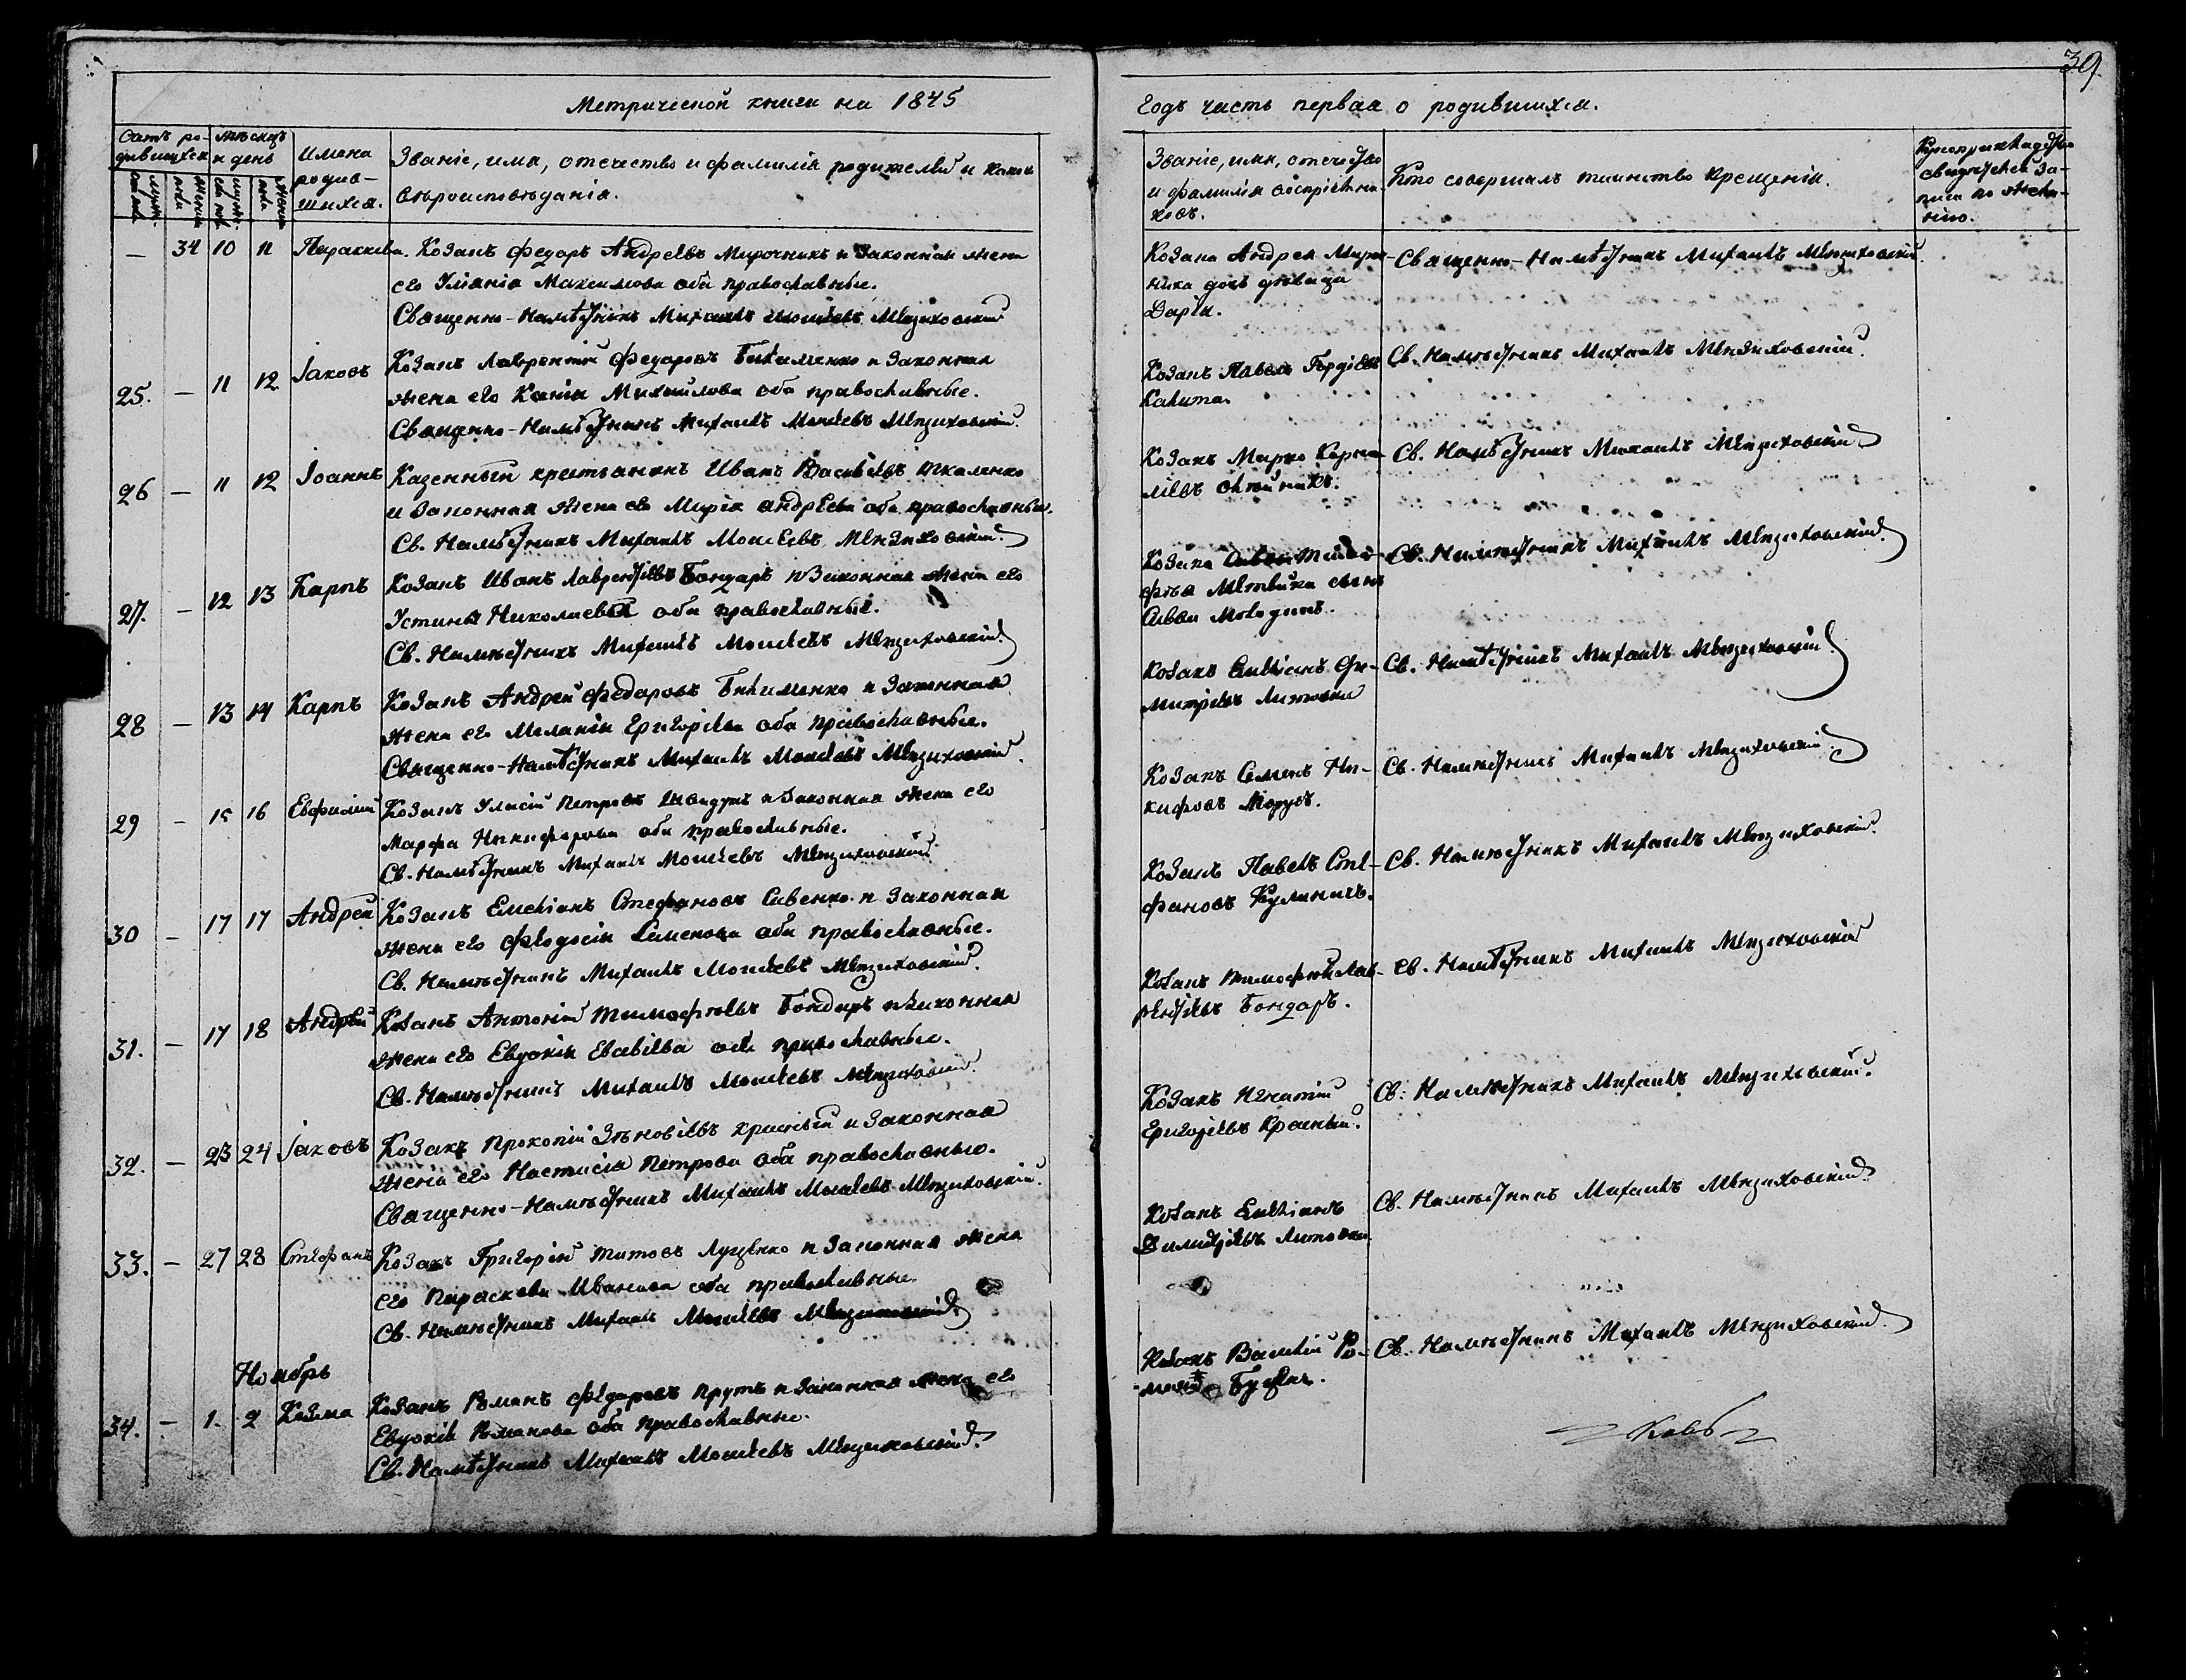 39.
Метрической книги на 1845
Годъ часть первая о родившихся.
Счетъ ро-
дившихся
мѣсяцъ
и день
Имена
родив-
шихся.
Званіе, имя, отечество и фамилія родителей и какого
вѣроисповѣданія.
Званіе, имя, отечество
и фамилія воспріемни-
ковъ.
Кто совершалъ таинство крещенія.
— 34 10 11 Параскева. Козакъ Федоръ Андреевъ Мирочникъ и законная жена
его Уліанія Максимова оба православные.
Священно-Намѣстникъ Михаилъ Моисеевъ Мензиховскій
Козака Андрея Мироч-
ника дочь девица
Дарія.
Священно-Намѣстникъ Михаилъ Мензиховскій
25. — 11 12 Іаковъ Козакъ Лаврентій Федоровъ Бикименко и законная
жена его Ксенія Михайлова оба православные.
Священно-Намѣстникъ Михаилъ Моисеевъ Мензиховскій.
Козакъ Павелъ Гордіевъ
Калита.
Св. Намѣстникъ Михаилъ Мензиховскій.
26 — 11 12 Іоаннъ Казенный крестьянинъ Иванъ Васильевъ
и законная жена его Марія Андреева оба православные.
Св. Намѣстникъ Михаилъ Моисеевъ Мензиховскій.
Козакъ Марко Корни-
ліевъ Олейникъ.
Св. Намѣстникъ Михаилъ Мензиховскій
27. — 12 13 Карпъ Козакъ Иванъ Лаврентіевъ Бондаръ и законная жена его
Устина Николаева оба православные.
Св. Намѣстникъ Михаилъ Моисеевъ Мензиховскій.
Козака
сынъ
Савва
Св. Намѣстникъ Михаилъ Мензиховскій.
28 — 13 14 Карпъ Козакъ Андрей Федоровъ Бикименко и законная
жена его Меланія Григоріева оба православные.
Священно-Намѣстникъ Михаилъ Моисеевъ Мензиховскій.
Козакъ Емліянъ Ди-
митріевъ Литовка
Св. Намѣстникъ Михаилъ Мензиховскій.
29 — 15 16 Евфимій Козакъ Уласій Петровъ и законная жена его
Марфа Никифорова оба православные.
Св. Намѣстникъ Михаилъ Моисеевъ Мензиховскій
Козакъ Семенъ Ни-
кифовъ
Св. Намѣстникъ Михаилъ Мензиховскій
30 — 17 17 Андрей Козакъ Емеліанъ Стефановъ Сивенко и законная
жена его Феодосія Семенова оба православные.
Св. Намѣстникъ Михаилъ Моисеевъ Мензиховскій.
Козакъ Павелъ Сте-
фановъ Кулиничъ.
Св. Намѣстникъ Михаилъ Мензиховскій.
31. — 17 18 Андрей Козакъ Антоній Тимофѣевъ Бондаръ и законная
жена его Евдокія оба православные.
Св. Намѣстникъ Михаилъ Моисеевъ Мензиховскій.
Козакъ Тимофей Лав-
рентіевъ Бондаръ.
Св. Намѣстникъ Михаилъ Мензиховскій
32. — 23 24 Іаковъ Козакъ Прокопій Зѣновіевъ Красный и законная
жена его Настасія Петрова оба православные.
Священно-Намѣстникъ Михаилъ Моисеевъ Мензиховскій.
Козакъ Игнатій
Григоріевъ Красный.
Св. Намѣстникъ Михаилъ Мензиховскій.
33. — 27 28 Стефанъ Козакъ Григорій Титовъ Луценко и законная жена
его Параскева Иванова оба православные.
Св. Намѣстникъ Михаилъ Моисеевъ Мензиховскій
Козакъ Емліянъ
Димитріевъ Литовка.
Св. Намѣстникъ Михаилъ Мензиховскій.
Ноябрь
34. — 1. 2 Козма Козакъ Романъ Федоровъ Прутъ и законная жена его
Евдокія Романова оба православные.
Св. Намѣстникъ Михаилъ Моисеевъ Мензиховскій.
Козакъ Василій Ро-
Св. Намѣстникъ Михаилъ Мензиховскій.